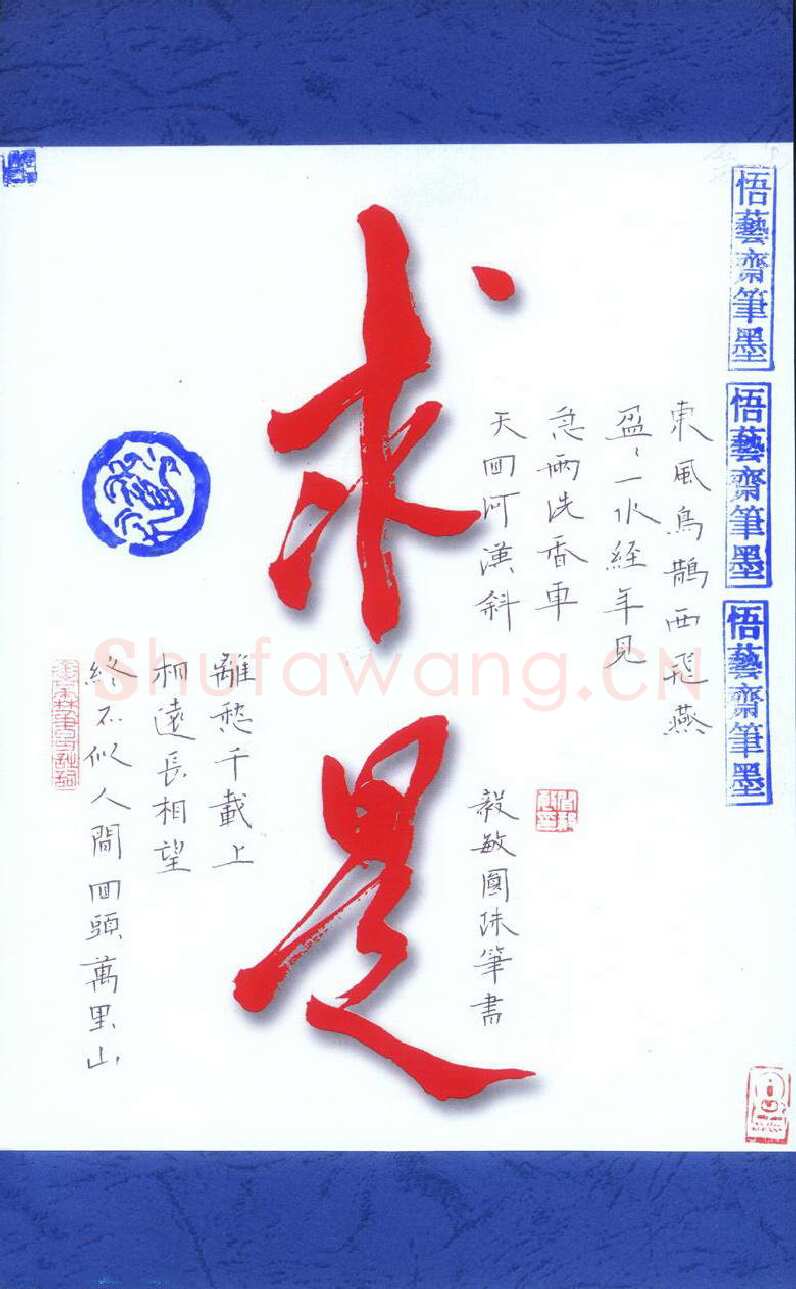 悟藝齋筆墨
悟藝齋筆墨
悟藝齋筆墨
東風鳥鵲西飛燕
盈、一水經年見
急雨洗香車
天回河漢斜
求是
離愁千載上
相遠長相望
終不似人間回頭萬里山
毅敏圓珠筆書
Shufawang.CN